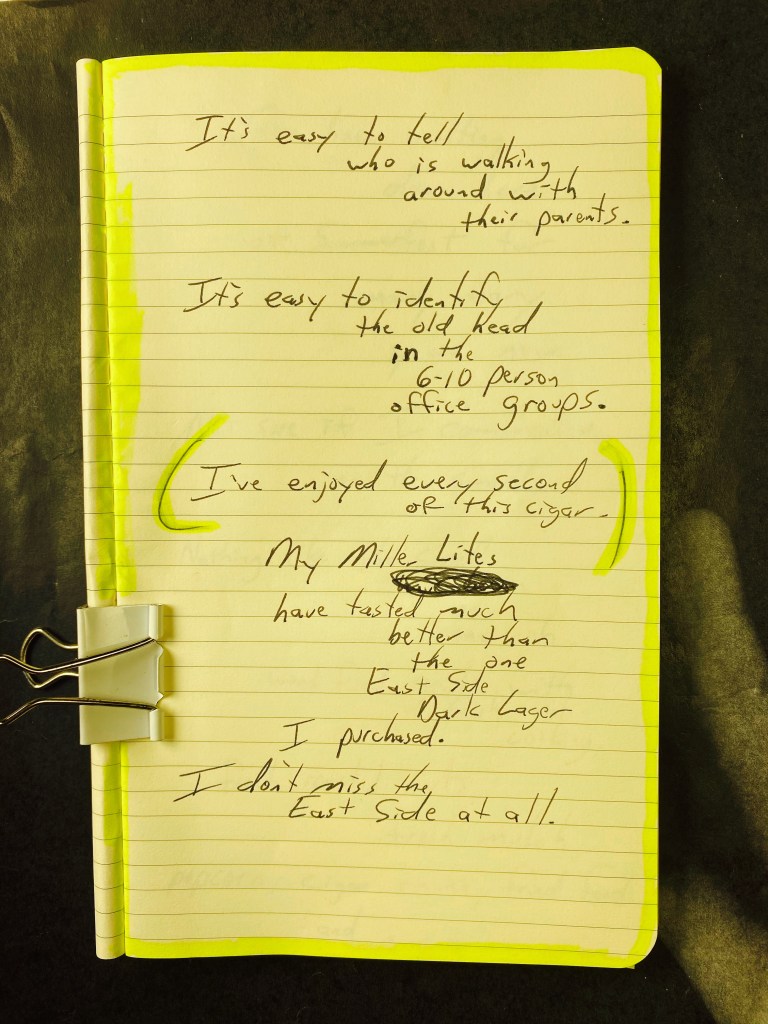 It's easy to tell
who is walking
around with
their parents.
It's easy to identify
the old head
in the
6-10 person
office groups.
(I've enjoyed every second
of this cigar.)
My Miller Lites
have tasted much
better than
the one
East Side
Dark Lager
I purchased.
I don't miss the
East Side at all.